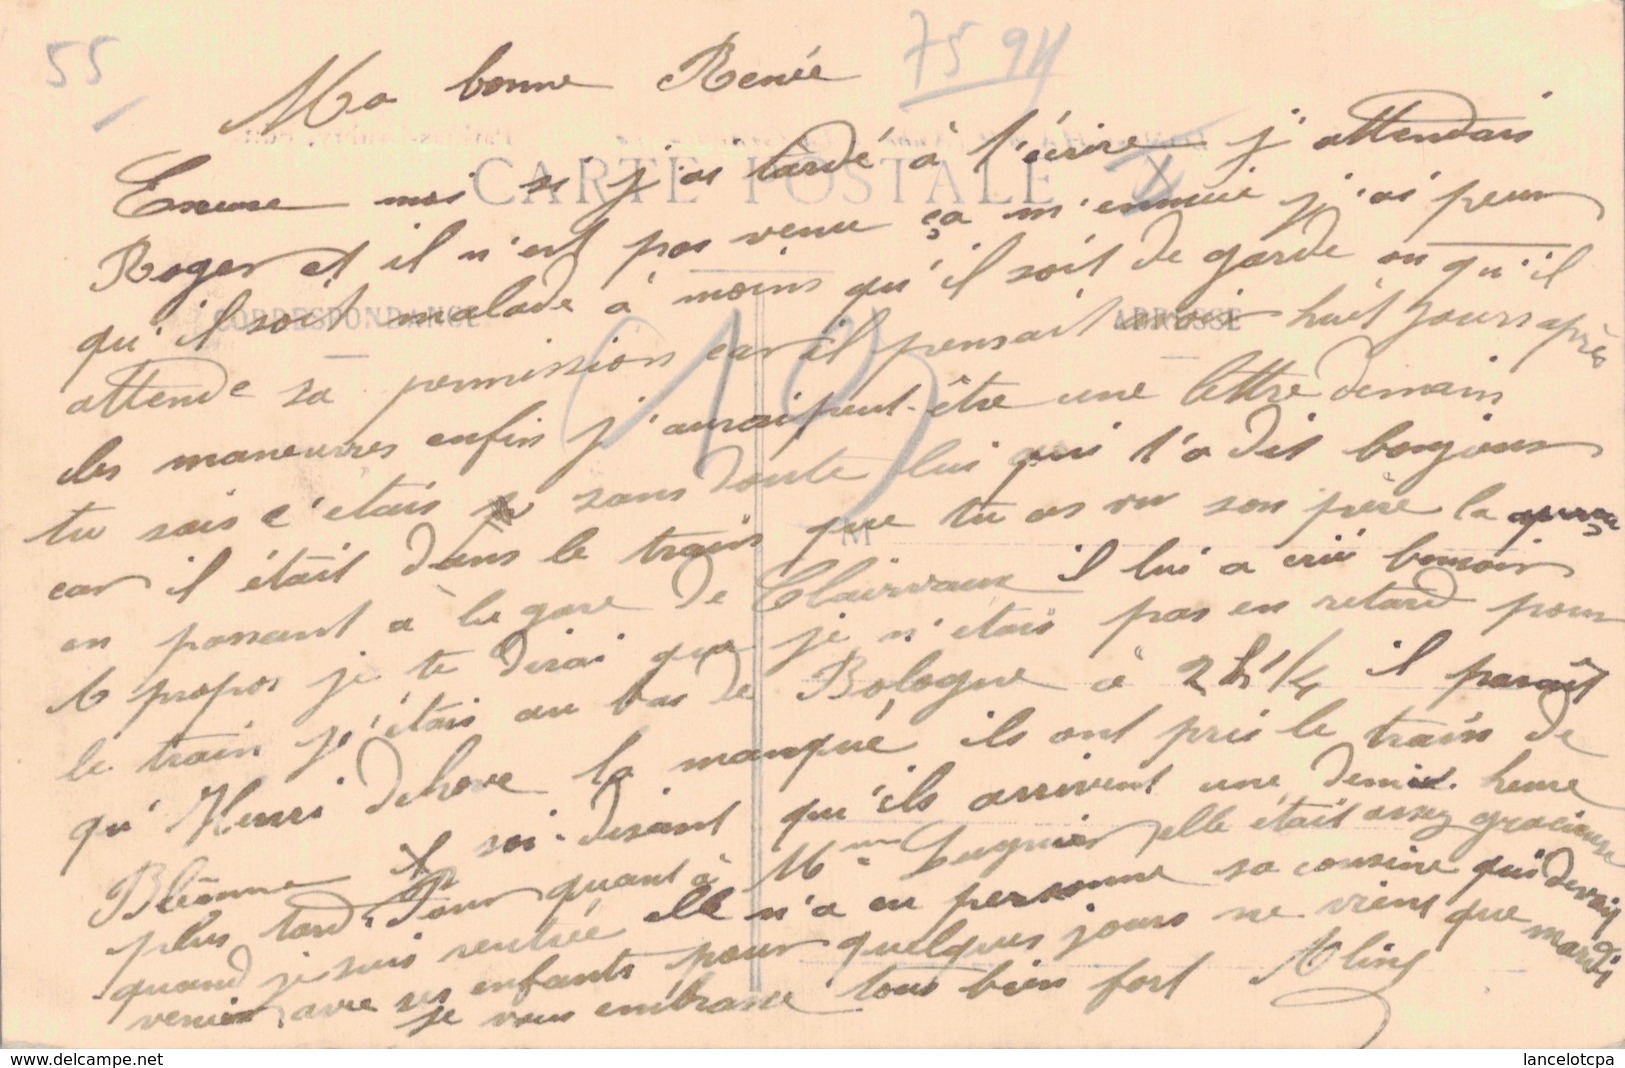 55
75 94
Ma bonne Renée
CARTE POSTALE
Excuse moi si j'ai tardé à t'écrire j'attendais
Roger et il n'est pas venu ça m'ennuie j'ai peur
qu'il soit malade à moins qu'il soit de garde ou qu'il
CORRESPONDANCE
ADRESSE
attende sa permission car il pensait avoir huit jours après
les maneuvres enfin j'aurai peut-être une lettre demain
tu sais c'etais sans doute lui qui t'a dit bonjour
car il était dans le train que tu as vu son père la
M
en passant à la gare de Clairvaux il lui a crié bonsoir
à propos je te dirai que je n'etais pas en retard pour
le train j'étais au bas de Bologne à 2 h 1/4 il parait
qu' Henri dehove la manqué ils ont pris le train de
soi-disant qu'ils arrivent une demie heure
plus tard. Pour quant à Mme elle était assez gracieuse
quand je suis rentrée elle n'a eu personne sa cousine qui devait
venir avec ses enfants pour quelques jours ne vient que mardi
je vous embrasse tous bien fort Aline
www.delcampe.net
lancelotcpa